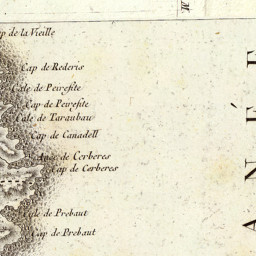 p de la Vieille
Cap de Rederis
Cale de Peiresite
Cap de Peiresite
Cale de Taraubau
Cap de Canadell
Anse de Cerberes
Cap de Cerberes
Cale de Prebaut
Cap de Prebaut
M
ANÉE